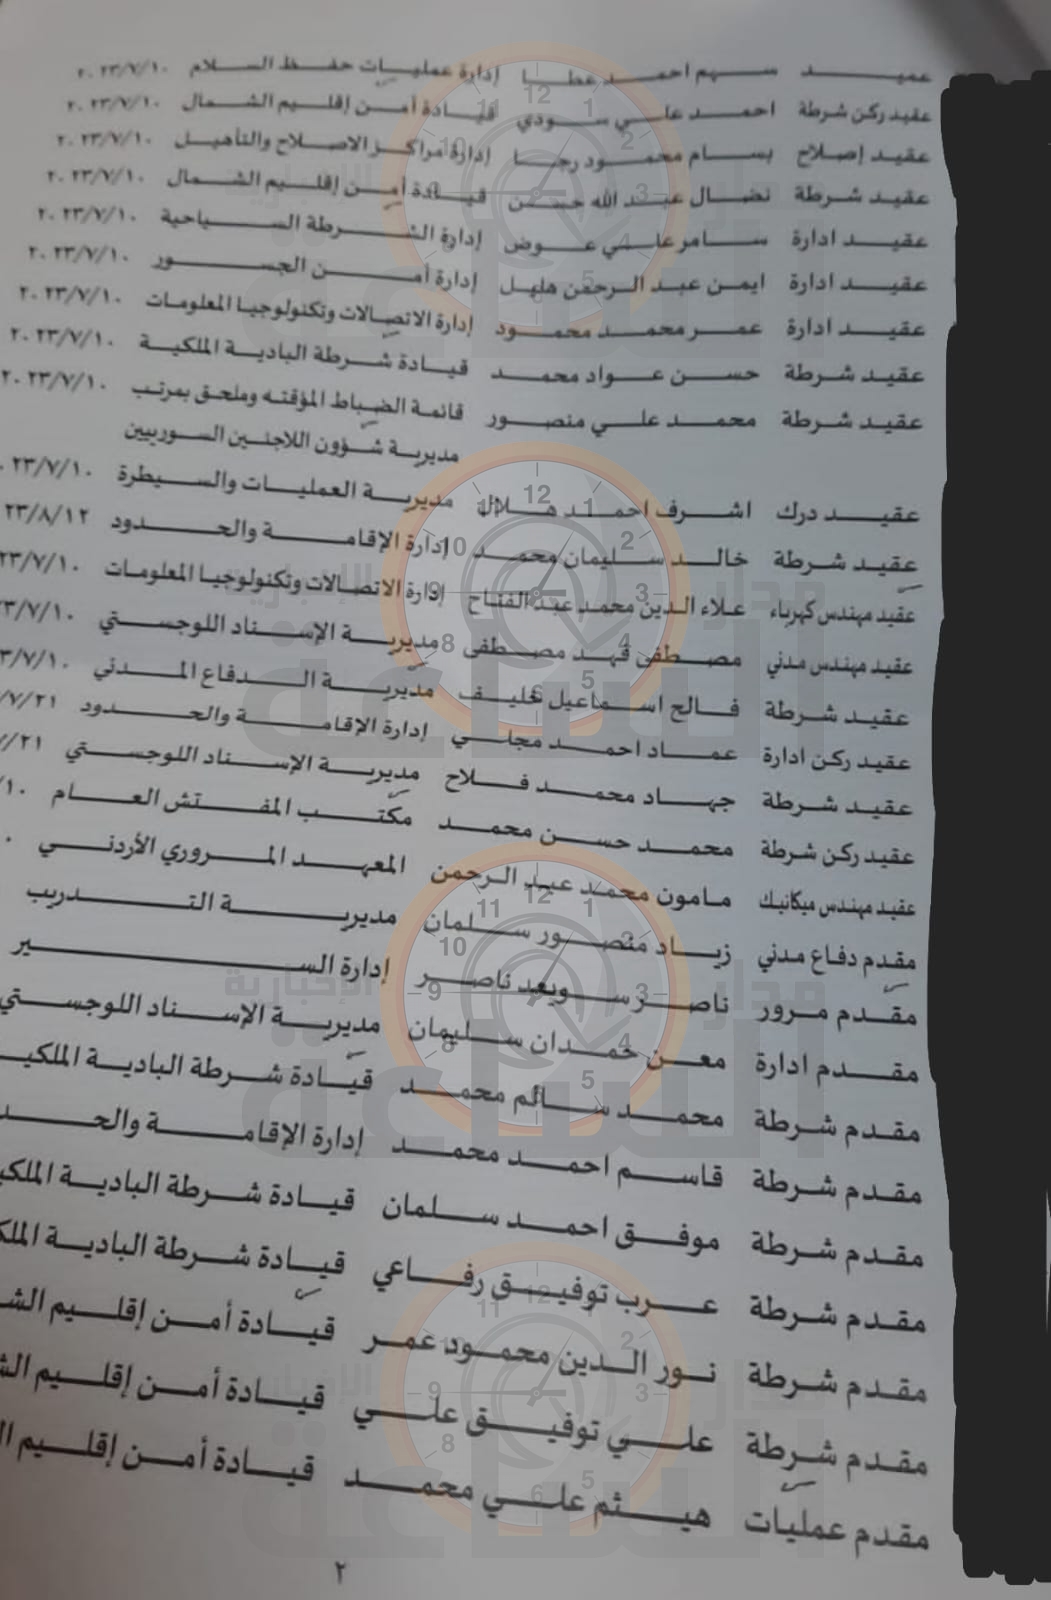 عميد سهم احمد عطا إدارة عمليات حفظ السلام ٢٠٢٣/٧/١٠
عقيد ركن شرطة احمد علي سودي قيادة أمن إقليم الشمال ٢٠٢٣/٧/١٠
عقيد إصلاح بسام محمود رجا إدارة مراكز الاصلاح والتأهيل ٢٠٢٣/٧/١٠
عقيد شرطة نضال عبد الله حسن قيادة أمن إقليم الشمال ٢٠٢٣/٧/١٠
عقيد ادارة سامر علي عوض إدارة الشرطة السياحية ٢٠٢٣/٧/١٠
عقيد ادارة ايمن عبد الرحمن هليل إدارة أمن الجسور ٢٠٢٣/٧/١٠
عقيد ادارة عمر محمد محمود إدارة الاتصالات وتكنولوجيا المعلومات ٢٠٢٣/٧/١٠
عقيد شرطة حسن عواد محمد قيادة شرطة البادية الملكية ٢٠٢٣/٧/١٠
عقيد شرطة محمد علي منصور قائمة الضباط المؤقته وملحق بمرتب ٢٠٢٣/٧/١٠
مديرية شؤون اللاجئين السوريين
عقيد درك اشرف احمد هلال مديرية العمليات والسيطرة ٢٣/٧/١٠
عقيد شرطة خالد سليمان محمد إدارة الإقامة والحدود ٢٣/٨/١٢
عقيد مهندس كهرباء علاء الدين محمد عبد الفتاح إدارة الاتصالات وتكنولوجيا المعلومات ٢٣/٧/١٠
عقيد مهندس مدني مصطفى فهد مصطفى مديرية الإسناد اللوجستي ٣/٧/١٠
عقيد شرطة فالح اسماعيل خليف مديرية الدفاع المدني ٣/٧/١٠
عقيد ركن ادارة عماد احمد مجلي إدارة الإقامة والحدود /٧/٢١
عقيد شرطة جهاد محمد فلاح مديرية الإسناد اللوجستي ٧/٢١
عقيد ركن شرطة محمد حسن محمد مكتب المفتش العام /١٠
عقيد مهندس ميكانيك مامون محمد عبد الرحمن المعهد المروري الأردني ٠
مقدم دفاع مدني زياد منصور سلمان مديرية التدريب
مقدم مرور ناصر سويعد ناصر إدارة السير
مقدم ادارة معن حمدان سليمان مديرية الإسناد اللوجستي
مقدم شرطة محمد سالم محمد قيادة شرطة البادية الملكي
مقدم شرطة قاسم احمد محمد إدارة الإقامة والحد
مقدم شرطة موفق احمد سلمان قيادة شرطة البادية الملكي
مقدم شرطة عرب توفيق رفاعي قيادة شرطة البادية الملك
مقدم شرطة نور الدين محمود عمر قيادة أمن إقليم الش
مقدم شرطة علي توفيق علي قيادة أمن إقليم الش
مقدم عمليات هيثم علي محمد قيادة أمن إقليم ال
٢